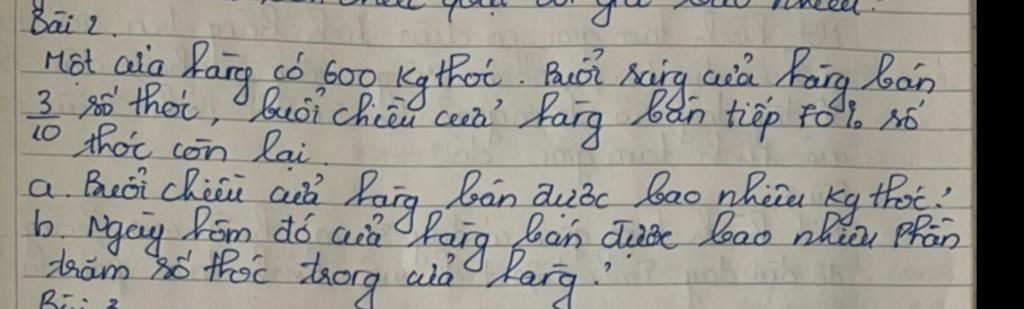 Bài 2.
Một cửa hàng có 600 kg thóc. Buổi sáng cửa hàng bán
3/10 số thóc, buổi chiều cửa hàng bán tiếp 70% số
thóc còn lại.
a. Buổi chiều cửa hàng bán được bao nhiêu kg thóc?
b. Ngày hôm đó cửa hàng bán được bao nhiêu phần
trăm số thóc trong cửa hàng?